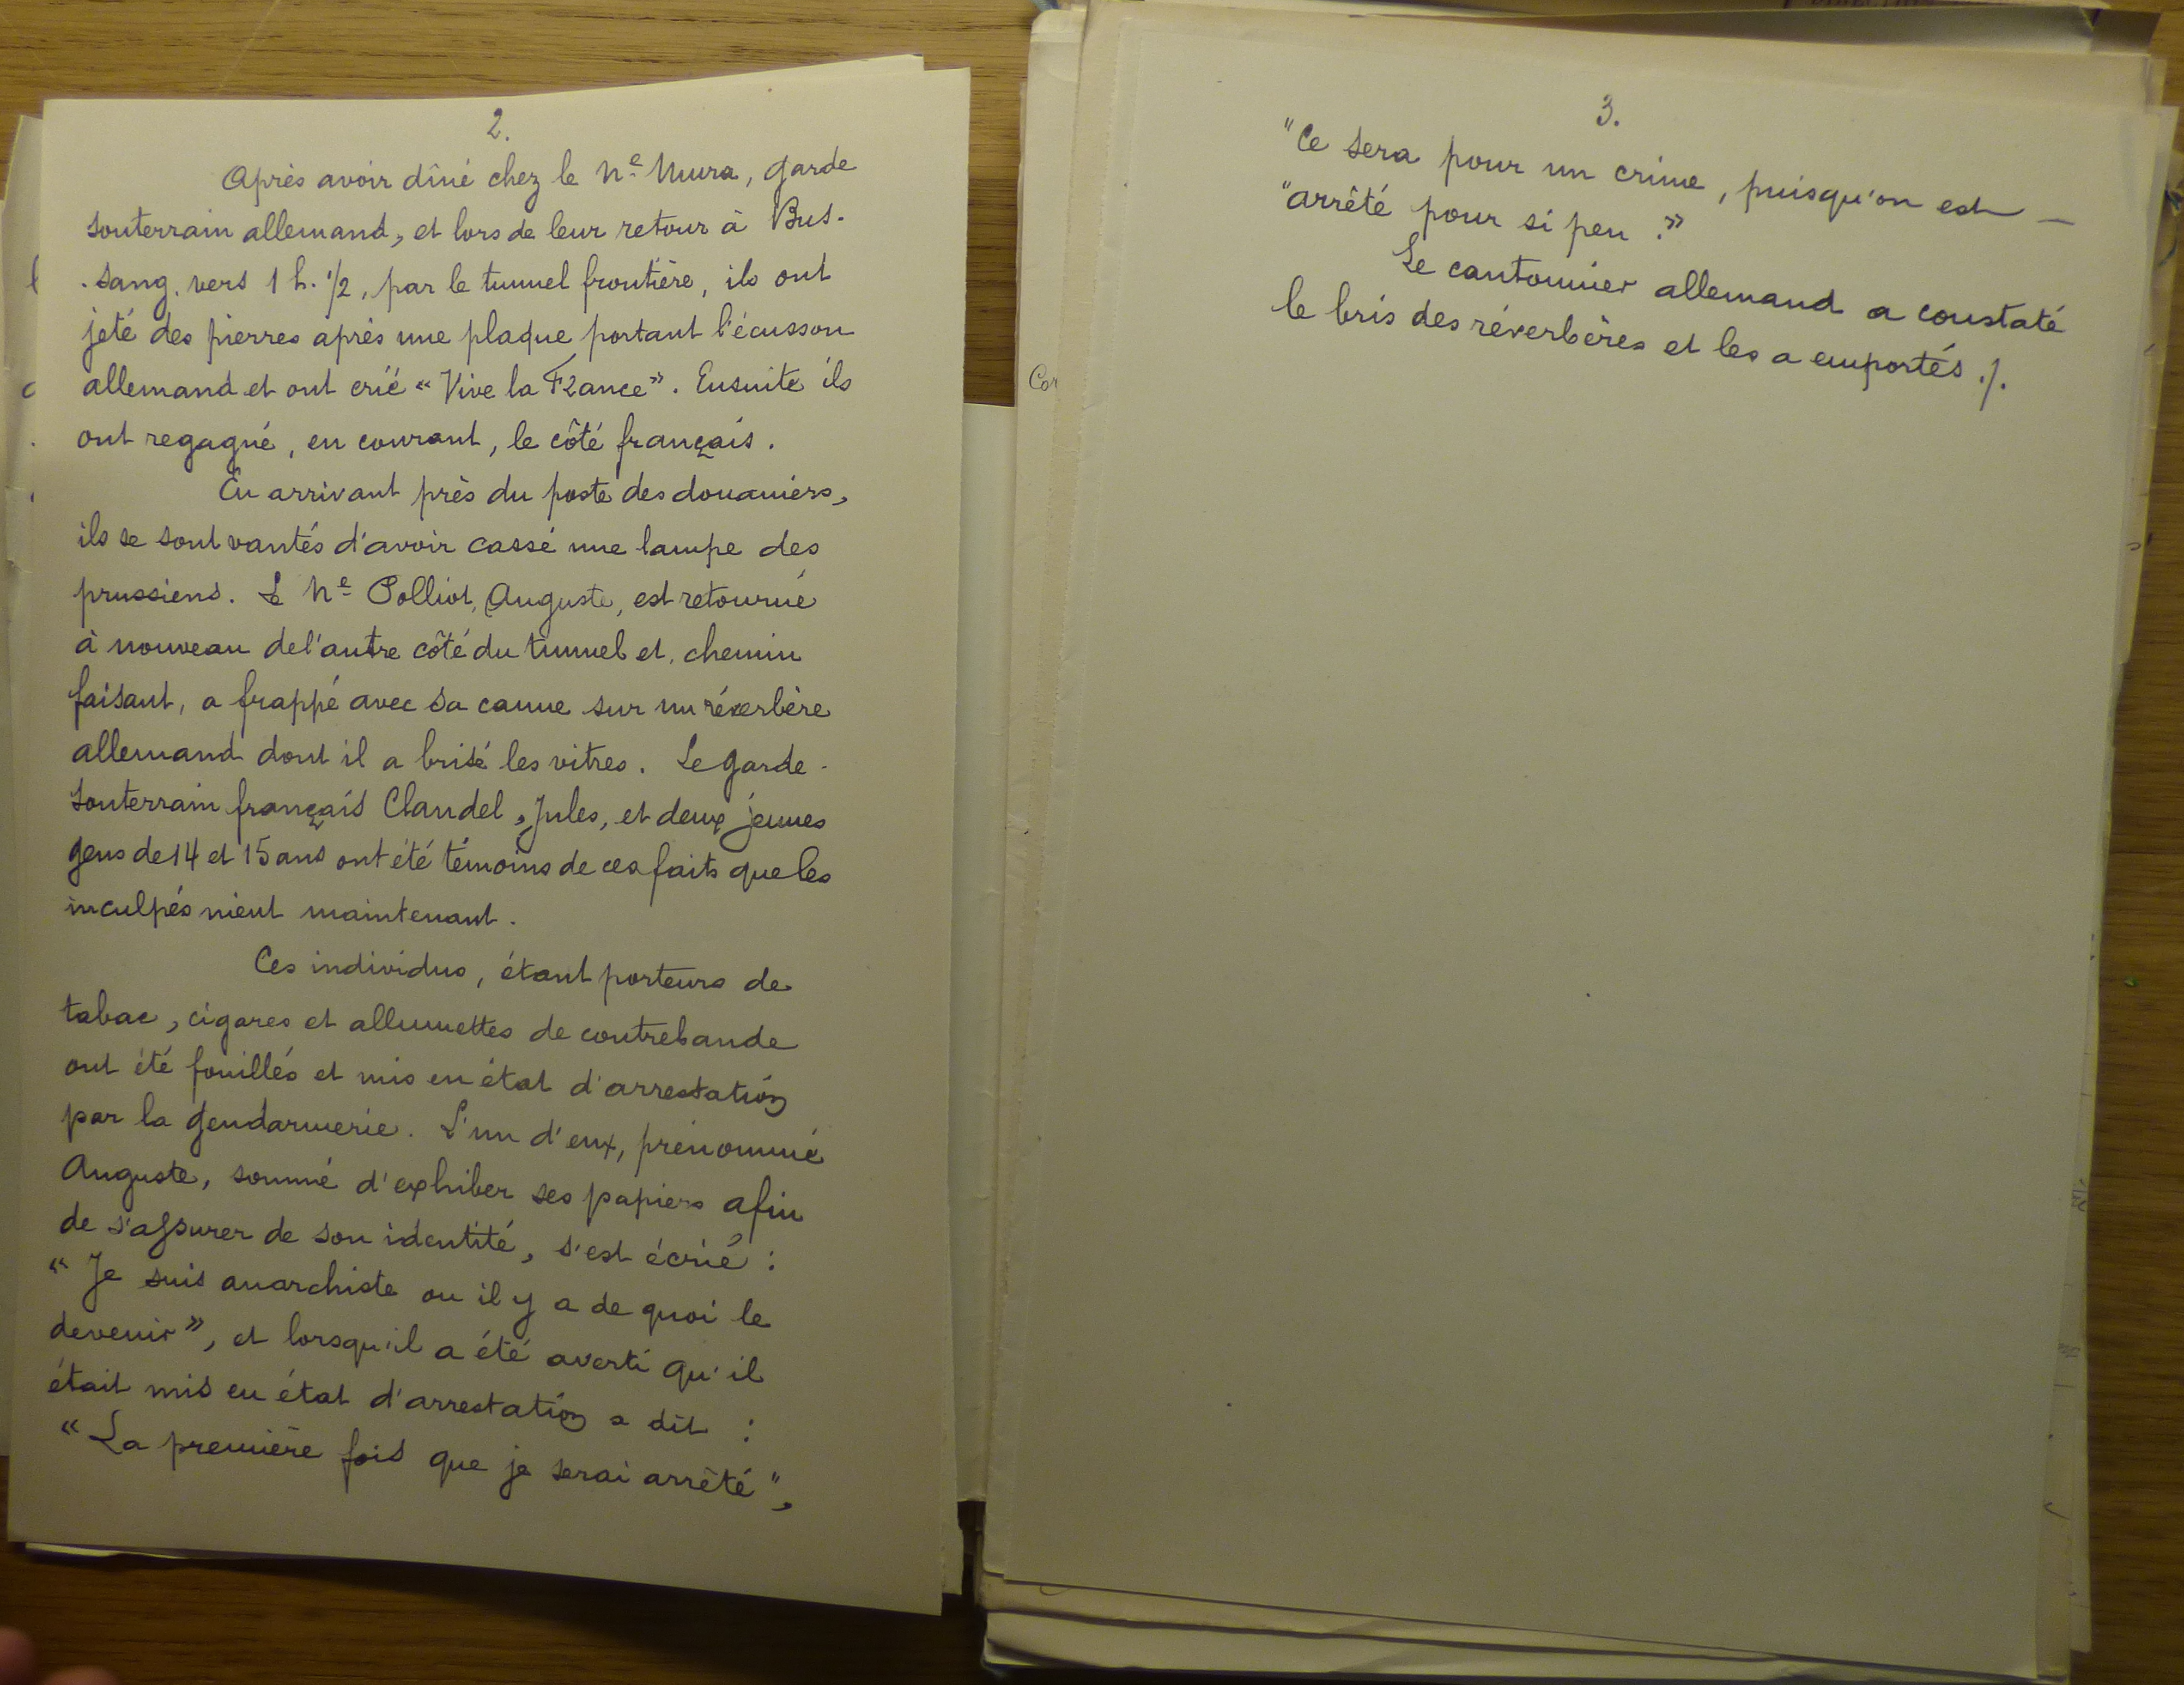 2.
Après avoir dîné chez le n.e Mura, garde
souterrain allemand, et lors de leur retour à Bus-
-sang, vers 1 h. 1/2, par le tunnel frontière, ils ont
jeté des pierres après une plaque portant l'écusson
allemand et ont crié « Vive la France ». Ensuite ils
ont regagné, en courant, le côté français.
En arrivant près du poste des douaniers,
ils se sont vantés d'avoir cassé une lampe des
prussiens. Le n.e Polliot, Auguste, est retourné
à nouveau de l'autre côté du tunnel et, chemin
faisant, a frappé avec sa canne sur un réverbère
allemand dont il a brisé les vitres. Le garde-
souterrain français Claudel, Jules, et deux jeunes
gens de 14 et 15 ans ont été témoins de ces faits que les
inculpés nient maintenant.
Ces individus, étant porteurs de
tabac, cigares et allumettes de contrebande
ont été fouillés et mis en état d'arrestation
par la gendarmerie. L'un d'eux, prénommé
Auguste, sommé d'exhiber ses papiers afin
de s'assurer de son identité, s'est écrié :
« Je suis anarchiste ou il y a de quoi le
devenir », et lorsqu'il a été averti qu'il
était mis en état d'arrestation a dit :
« La première fois que je serai arrêté ",
3.
"Ce sera pour un crime, puisqu'on est —
"arrêté pour si peu. »
Le cantonnier allemand a constaté
le bris des réverbères et les a emportés ./.
Cor